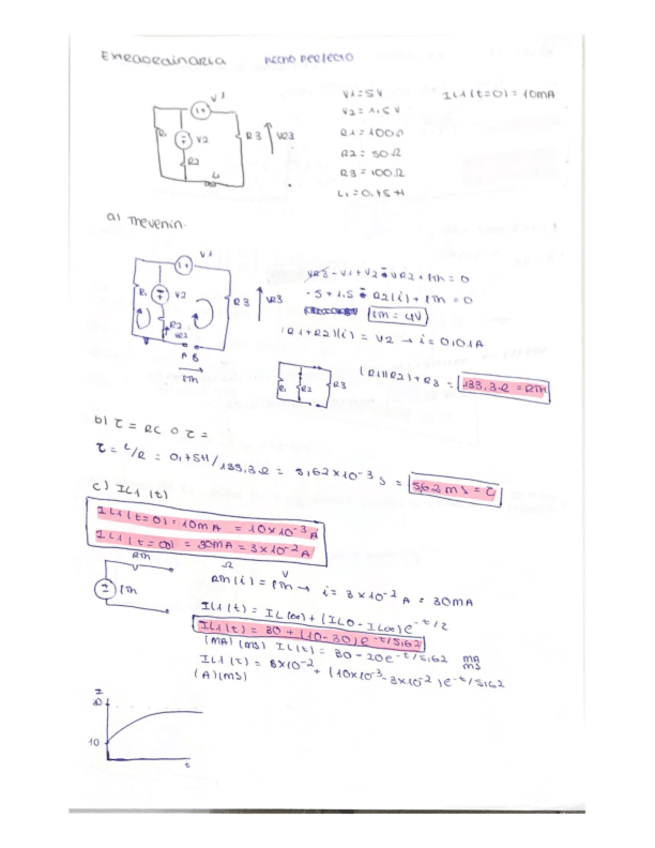 Extraordinaria HECHO PERFECTO
V1
R1 V2 R3 VR3
R2
L1
V1 = 5V IL1(t=0) = 10mA
V2 = 1.5V
R1 = 100Ω
R2 = 50Ω
R3 = 100Ω
L1 = 0,75H
a) Thevenin.
V1
R1 V2 R3 VR3
R2
VR2
A B
ETH
-5 + 1.5 + R2(i) + ETH = 0
ETH = 4V
(R1+R2)(i) = V2 → i = 0,01A
R1 R2 R3
(R1||R2) + R3 = 133,3Ω = RTH
b) τ = RC o τ =
τ = L/R = 0,75H/133,3Ω = 5,62x10-3 s = 5,62 ms = τ
c) IL1(t)
IL1(t=0) = 10mA = 10x10-3 A
IL1(t=∞) = 30mA = 3x10-2 A
RTH
ETH
Ω V
RTH(i) = ETH → i = 3x10-2 A = 30mA
IL1(t) = IL(∞) + (IL0 - IL∞) e-t/τ
IL1(t) = 30 + (10-30) e-t/5,62
(mA) (ms) IL(t) = 30 - 20e-t/5,62 mA ms
IL1(t) = 3x10-2 + (10x10-3 - 3x10-2) e-t/5,62
(A)(ms)
I
30
10
t